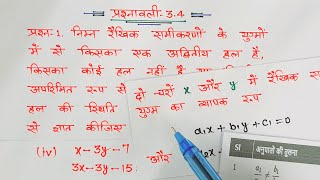 प्रश्नावली-3.4
प्रश्न-1. निम्न रैखिक समीकरणों के युग्मों
में से किसका एक अद्वितीय हल है,
किसका कोई हल नहीं है
अपरिमित रूप से
दो चरों x और y में रैखिक
हल की स्थिति
युग्म का व्यापक रूप
से ज्ञात कीजिए
a₁x + b₁y + c₁ = 0
(iv) x - 3y - 7
और
3x - 3y - 15
SI
अनुपातों की तुलना
1